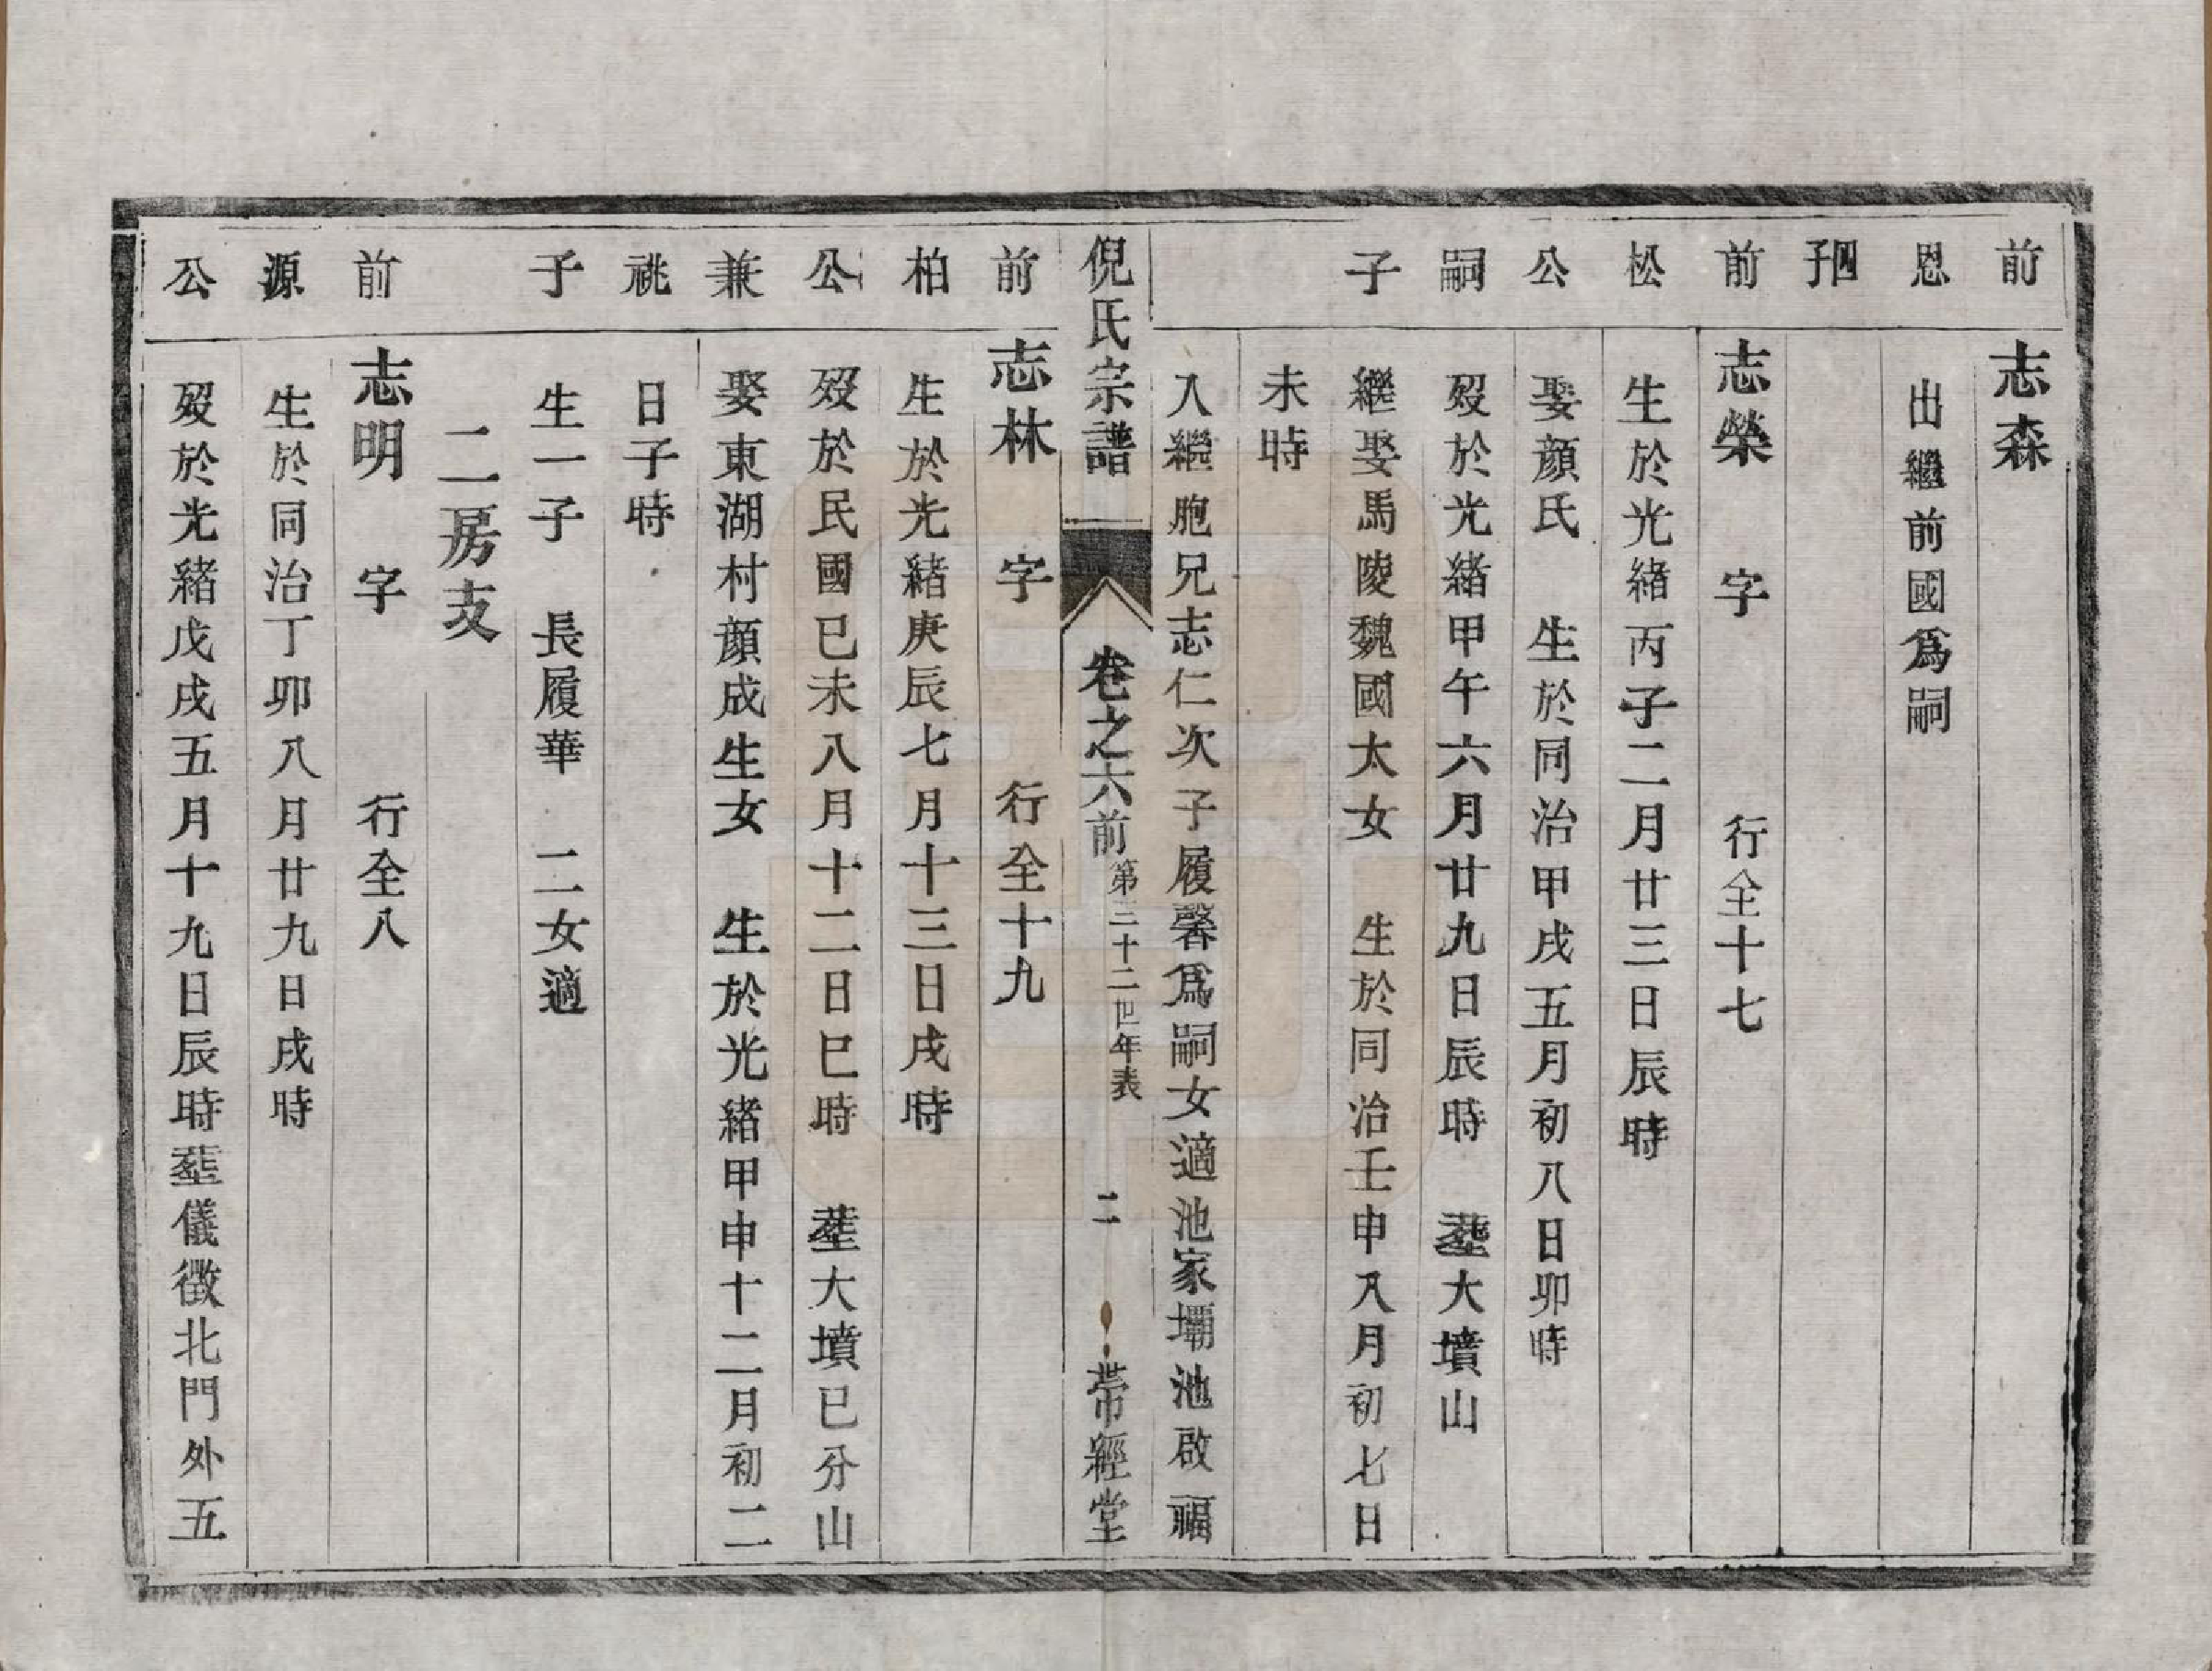 前 志森
恩 出繼前國爲嗣
四子
前 志榮 字 行全十七
松 生於光緒丙子二月廿三日辰時
公 娶顏氏 生於同治甲戌五月初八日卯時
嗣 歿於光緒甲午六月廿九日辰時 塟大墳山
子 繼娶馬陵魏國太女 生於同治壬申八月初七日
未時
入繼胞兄志仁次子履馨爲嗣女適池家壩池啟福
倪氏宗譜 卷之六前 第三十二世年表 二 帶經堂
前 志林 字 行全十九
柏 生於光緒庚辰七月十三日戌時
公 歿於民國已未八月十二日巳時 塟大墳已分山
兼 娶東湖村顏成生女 生於光緒甲申十二月初二
祧 日子時
子 生一子 長履華 二女適
二房支
前 志明 字 行全八
源 生於同治丁卯八月廿九日戌時
公 歿於光緒戊戌五月十九日辰時塟儀徵北門外五